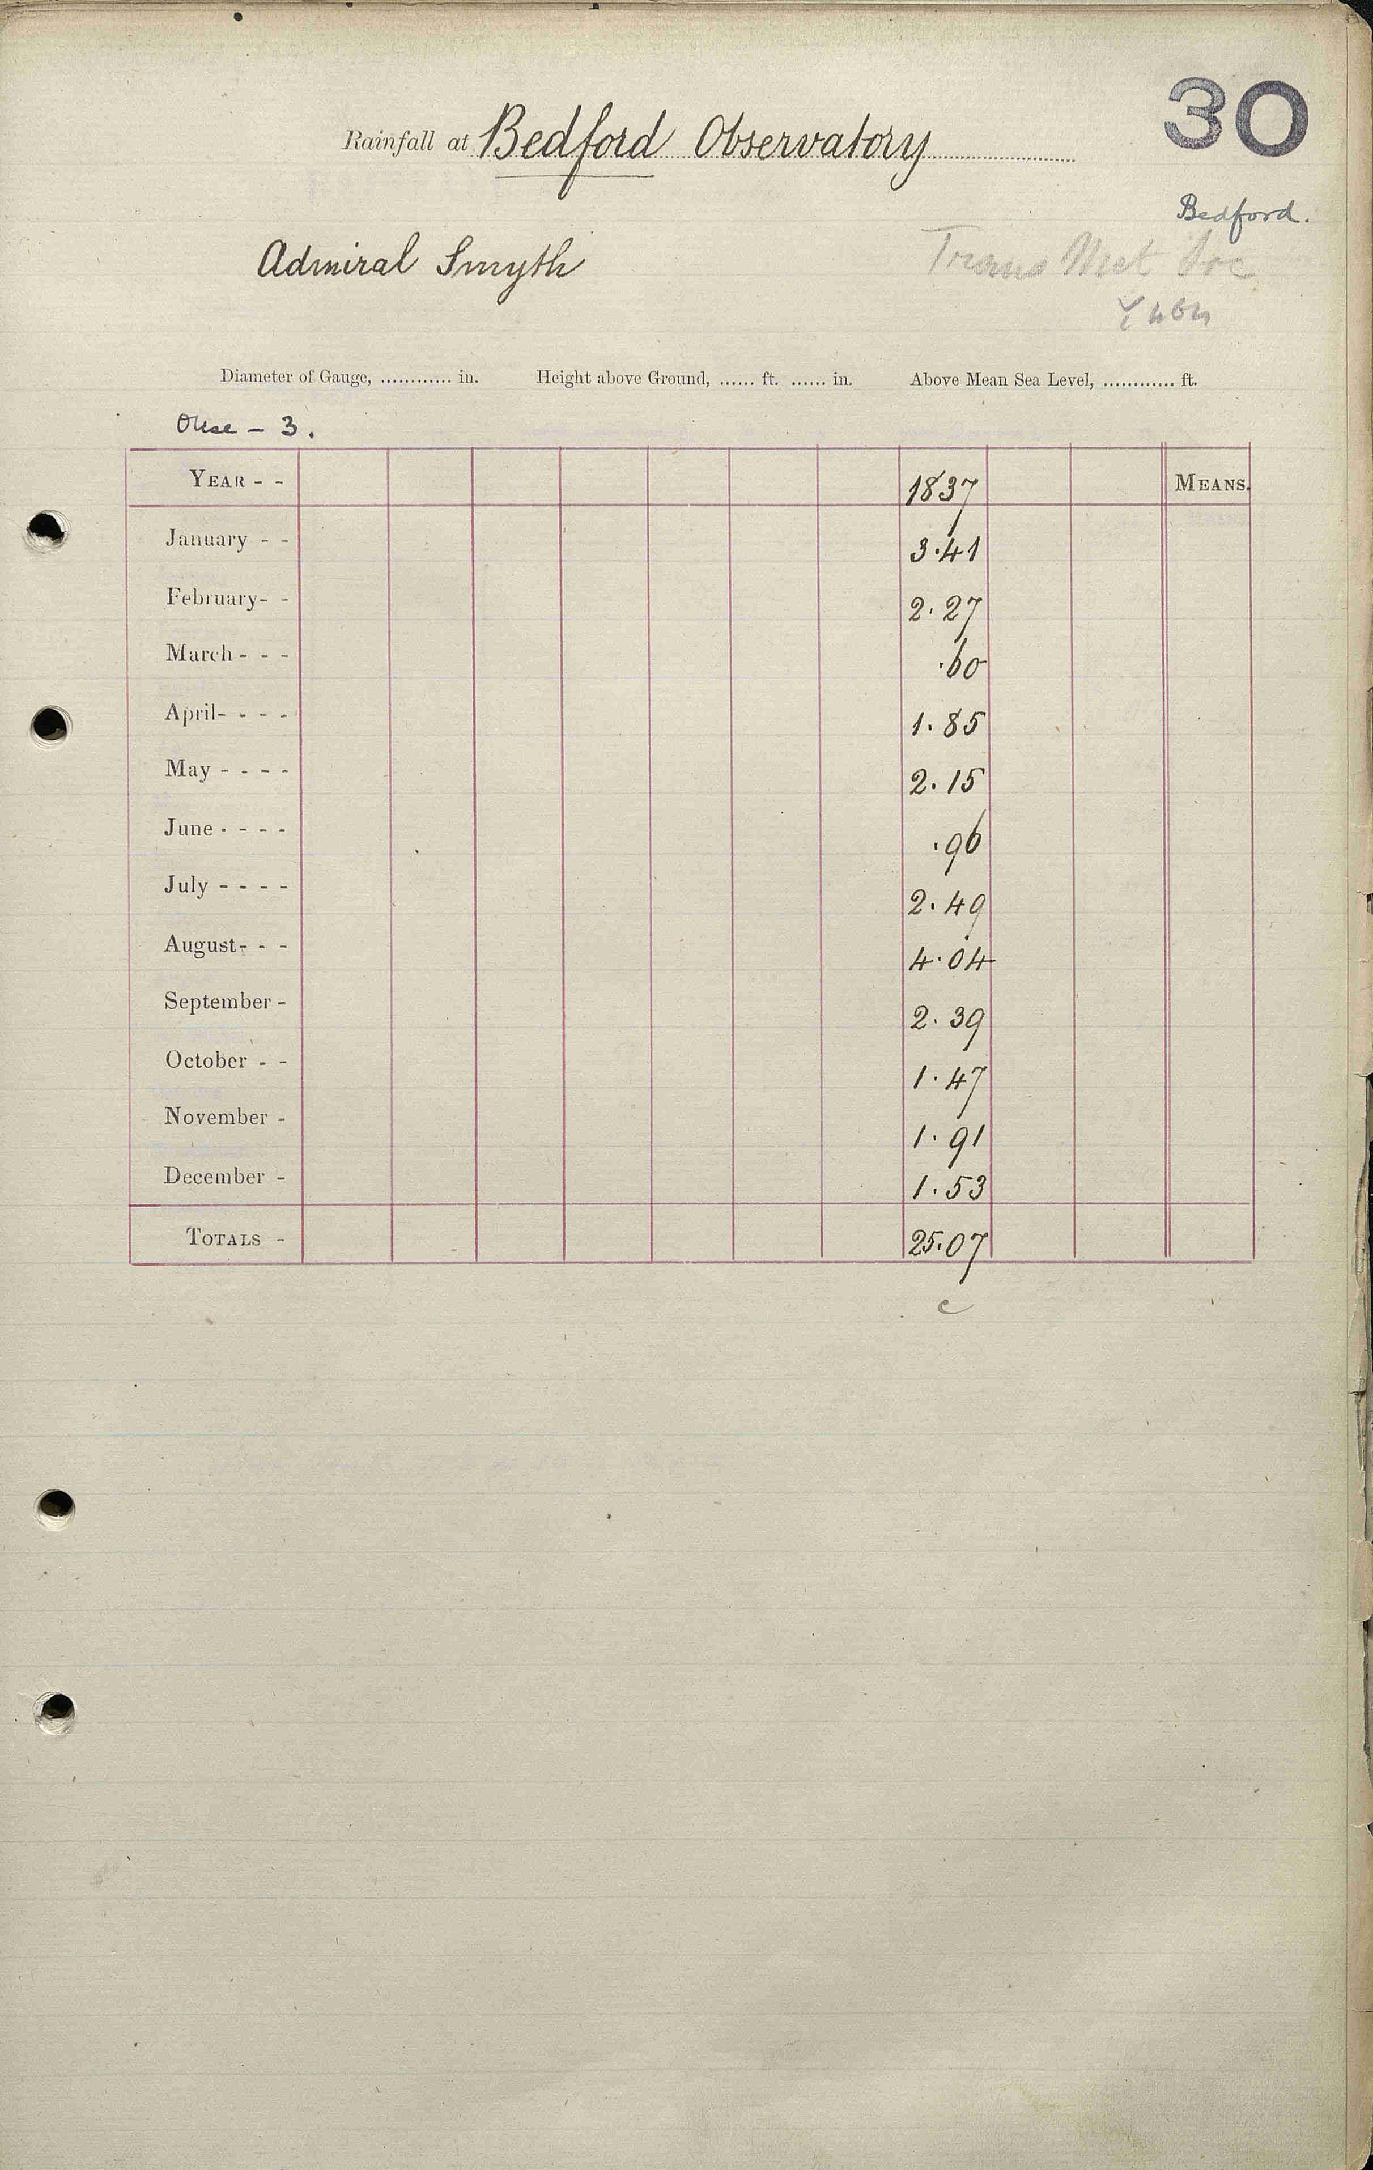 30
Rainfall at Bedford Observatory
Bedford.
Admiral Smyth
Trans Met Soc
Diameter of Gauge, ............ in. Height above Ground, ...... ft. ...... in. Above Mean Sea Level, ............ ft.
Ouse - 3.
YEAR - - 1837 MEANS.
January - - 3.41
February- - 2.27
March - - - .60
April- - - - 1.85
May - - - - 2.15
June - - - - .96
July - - - - 2.49
August- - - 4.04
September - 2.39
October - - 1.47
November - 1.91
December - 1.53
TOTALS - 25.07
c